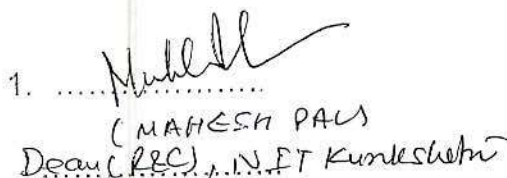 1. ....................
( MAHESH PAL)
Dean (R&C), NIT Kurukshetra